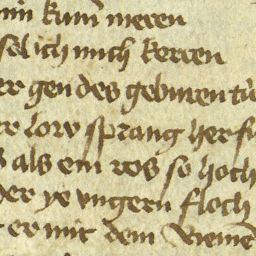 nin kum meren
solich mich keren
er gen des geburen tu
er low sprang herfu
s als ein ros so hoch
der ye vngern floch
er mit dem Rieme